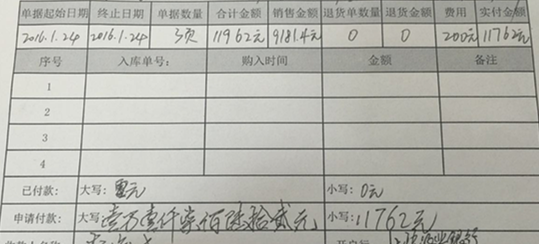 单据起始日期 终止日期 单据数量 合计金额 销售金额 退货单数量 退货金额 费用 实付金额
2016.1.24 2016.1.24 3页 11962元 9181.4元 0 0 200元 11762元
序号 入库单号: 购入时间 金额 备注
1
2
3
4
已付款: 大写: 零元 小写: 0元
申请付款: 大写: 壹万壹仟柒佰陆拾贰元 小写: 11762元